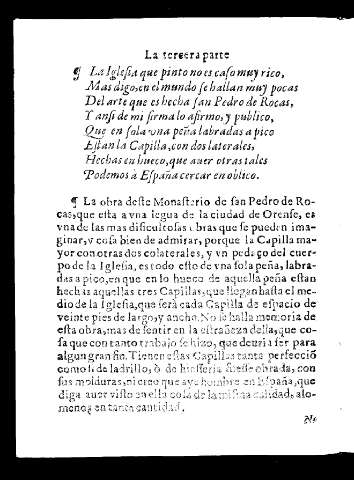 La tercera parte
¶ La Iglesia que pinto no es caso muy rico,
Mas digo, en el mundo se hallan muy pocas
Del arte que es hecha san Pedro de Rocas,
Y ansi de mi firma lo afirmo, y publico,
Que en sola vna peña labradas a pico
Estan la Capilla, con dos laterales,
Hechas en hueco, que auer otras tales
Podemos à España cercar en oblico.
¶ La obra deste Monasterio de san Pedro de Ro-
cas, que esta vna legua de la ciudad de Orense, es
vna de las mas dificultosas obras que se pueden ima-
ginar, y cosa bien de admirar, porque la Capilla ma-
yor con otras dos colaterales, y vn pedaço del cuer-
po de la Iglesia, es todo este de vna sola peña, labra-
das a pico, en que en lo hueco de aquella peña estan
hechas aquellas tres Capillas, que llegan hasta el me-
dio de la Iglesia, que serà cada Capilla de espacio de
veinte pies de largo, y ancho. No se halla memoria de
esta obra, mas de sentir en la estrañeza della, que co-
sa que con tanto trabajo se hizo, que deuria ser para
algun gran fin. Tienen estas Capillas tanta perfecciõ
como si de ladrillo, ò de hiesseria fuesse obrada, con
sus molduras, ni creo que aya hombre en España, que
diga auer visto en ella cosa de la misma calidad, alo-
menos en tanta cantidad.